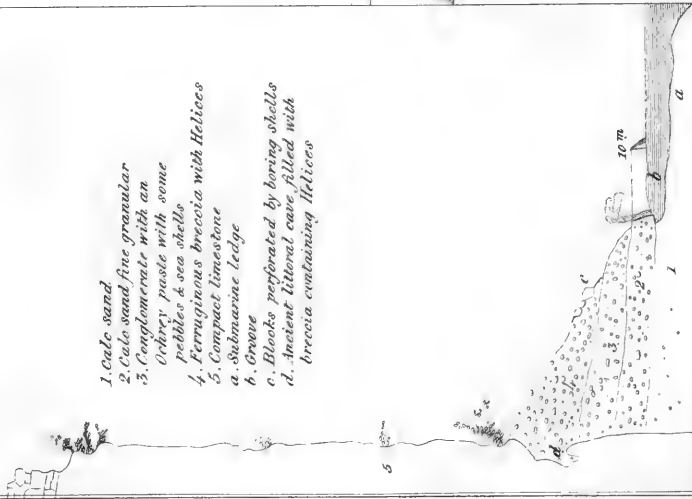 1. Calc sand
2. Calc sand fine granular
3. Conglomerate with an
Ochrey paste with some
pebbles & sea shells
4. Ferruginous breccia with Helices
5. Compact limestone
a. Submarine ledge
b. Groove
c. Blocks perforated by boring shells
d. Ancient littoral cave filled with
breccia containing Helices
5
d
4
3
2
1
c
10 m
b
a